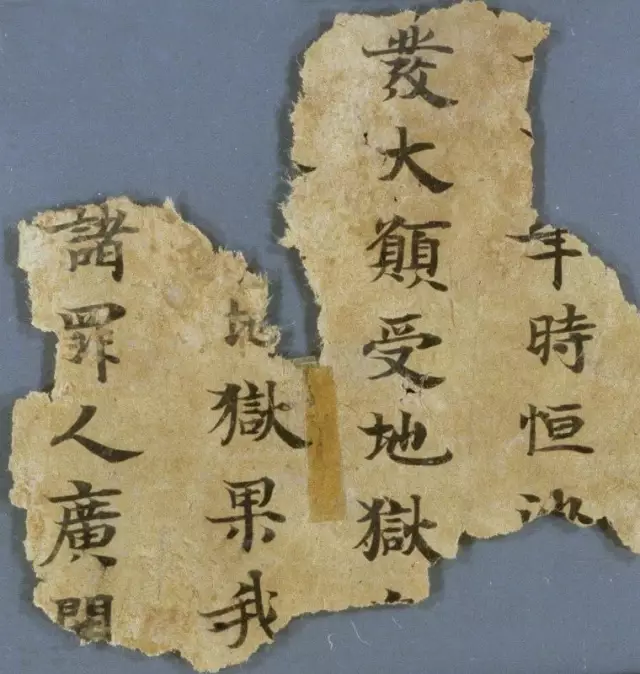 年時恒
發大願受地獄
地獄果我
諸罪人廣開